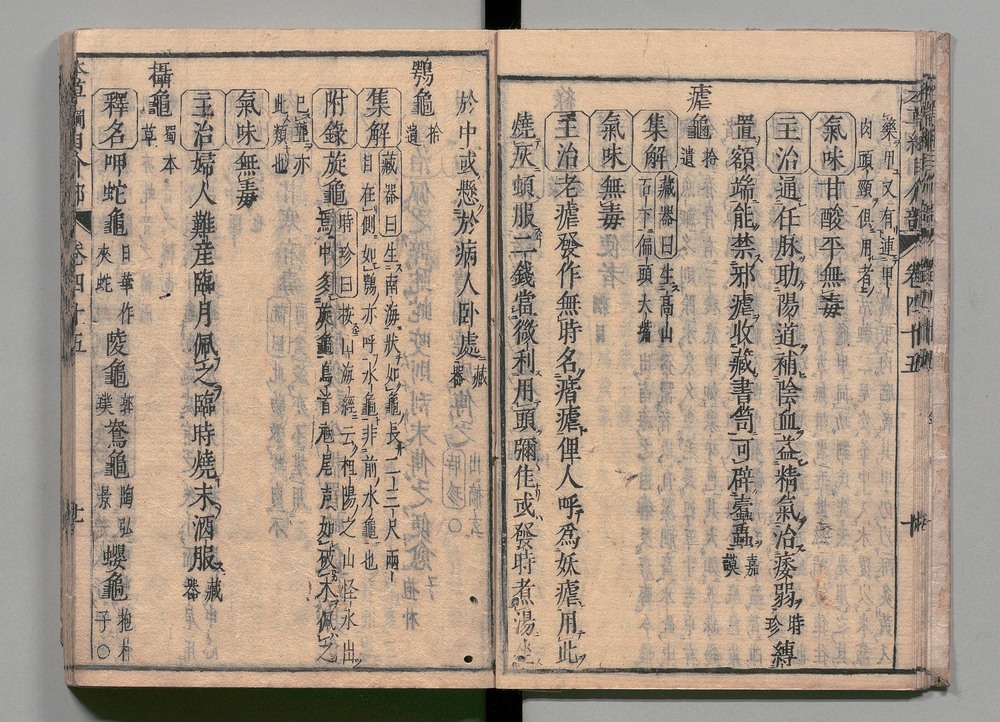 藥用又有連甲
肉頭頸俱用者
氣味甘酸平無毒
主治通任脉助陽道補陰血益精氣治痿弱時珍縛
置額端能禁邪瘧收藏書笥可辟蠹蟲嘉謨
瘧龜拾遺
集解藏器曰生高山石下偏頭大嘴
氣味無毒
主治老瘧發作無時名痎瘧俚人呼爲妖瘧用此
燒灰頓服二錢當微利用頭彌佳或發時煮湯坐
於中或懸於病人卧處藏器
鶚龜拾遺
集解藏器曰生南海狀如龜長二三尺兩
目在側如鶚亦呼水龜非前水龜也
附錄旋龜時珍曰按山海經云杻陽之山怪水出
焉中多旋龜鳥首虺尾聲如破木佩之
已聾亦
此類也
氣味無毒
主治婦人難産臨月佩之臨時燒末酒服藏器
攝龜蜀本草
釋名呷蛇龜日華作夾蛇陵龜郭璞鴦龜陶弘景蠳龜抱朴子○
本草綱目介部
卷四十五